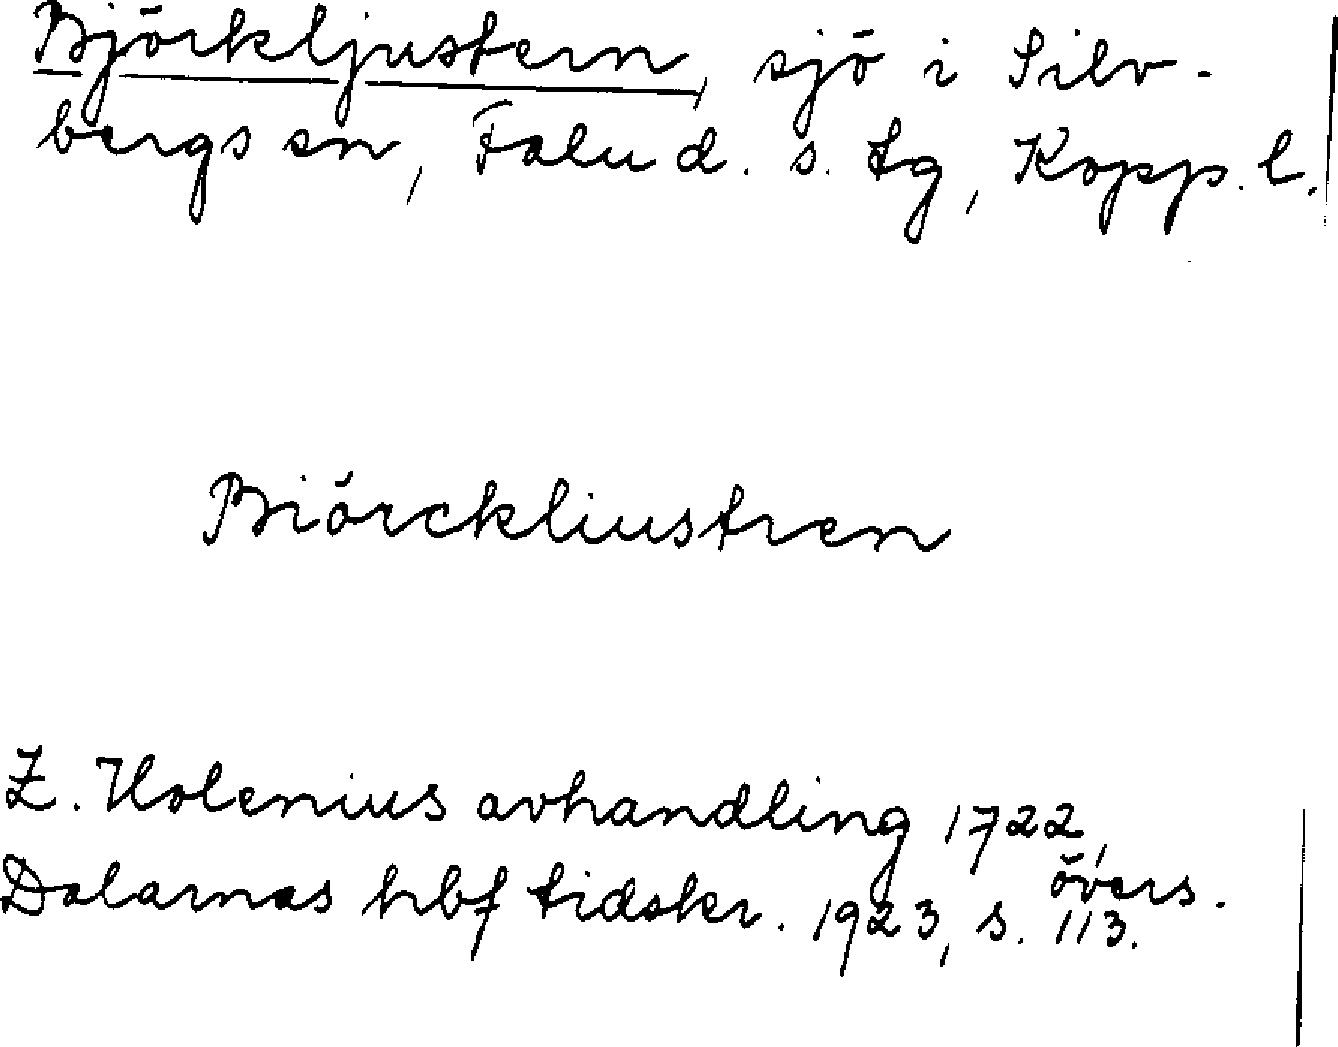 Björkljustern, sjö i Silv-
bergs sn, Falu d. s. tg, Kopp. l.
Biörckliustren
Z. Holenius avhandling 1722,
övers.
Dalarnas hbf tidskr. 1923, s. 113.